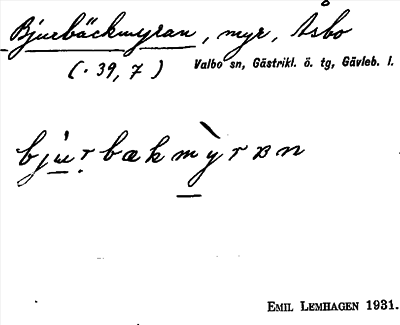 Bjurbäckmyran, myr, Åsbo
(. 39, 7) Valbo sn, Gästrikl. ö. tg, Gävleb. l.
bju̠̍ṛbækm̠ỳran
EMIL LEMHAGEN 1931.